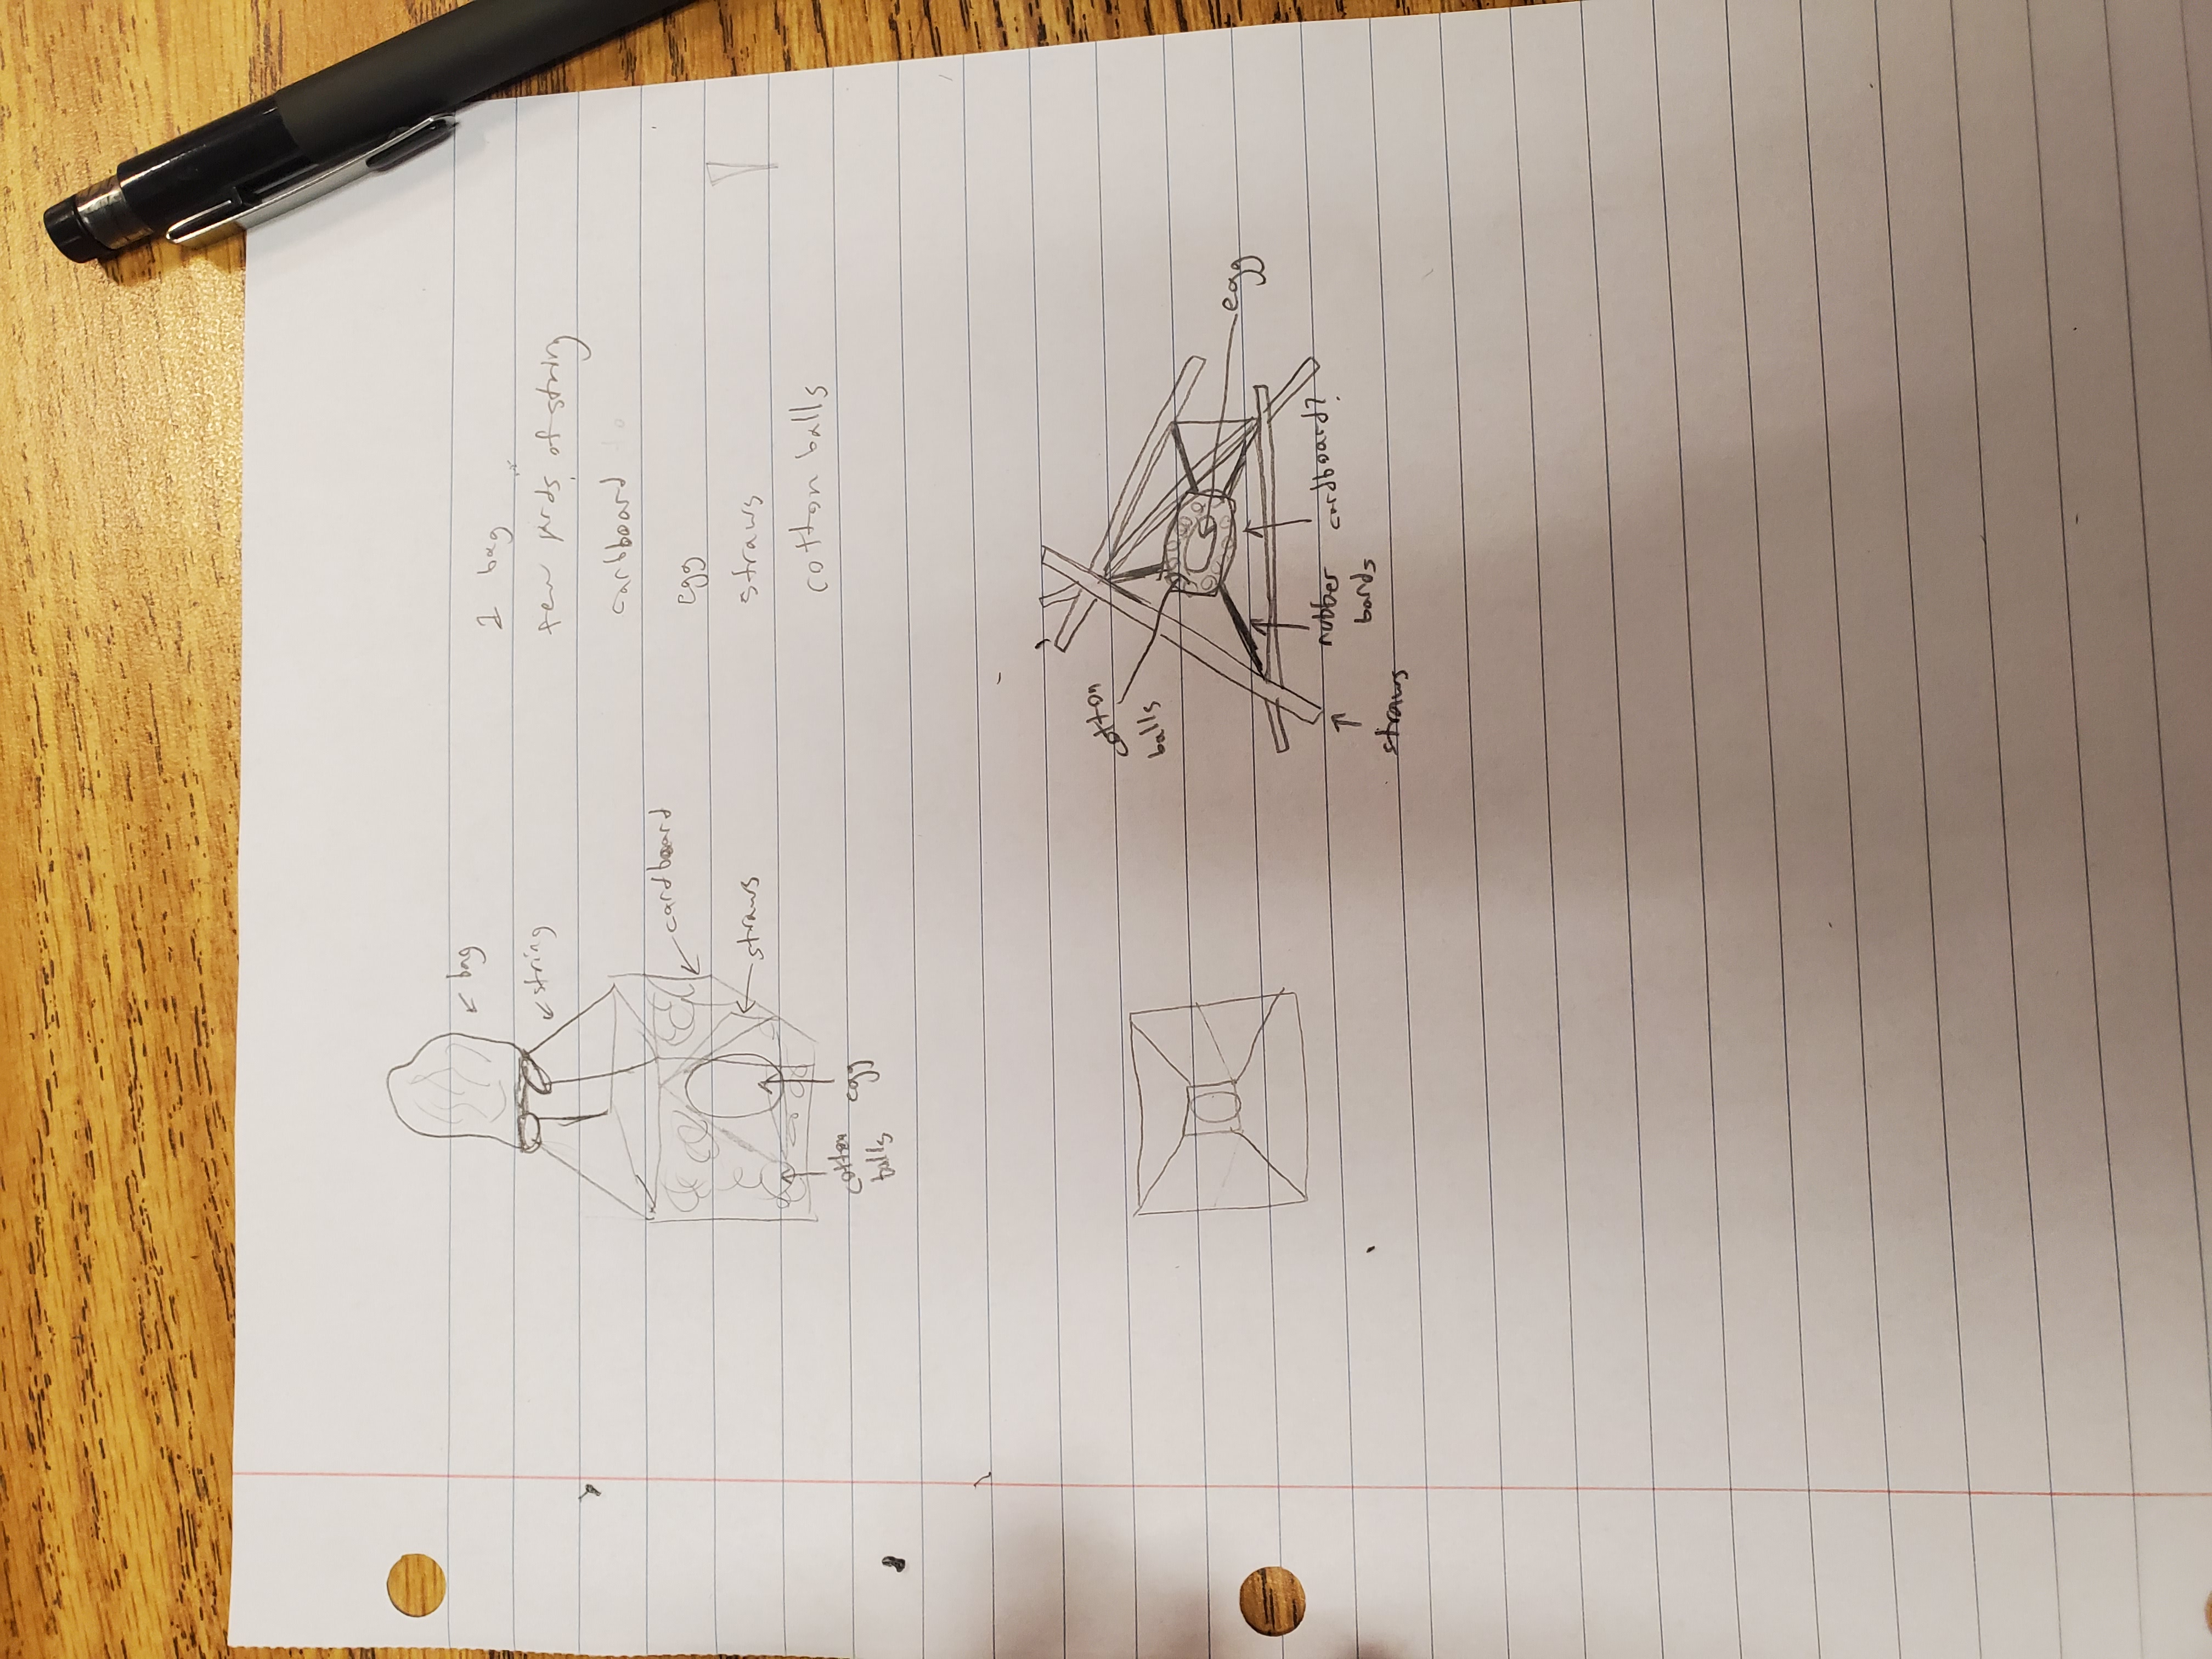 bag
string
cardboard
straws
cotton
balls
egg
1 bag
few yards of string
carbboard
egg
straws
cotton balls
cotton
balls
egg
rubber
bands
cardboard?
straws